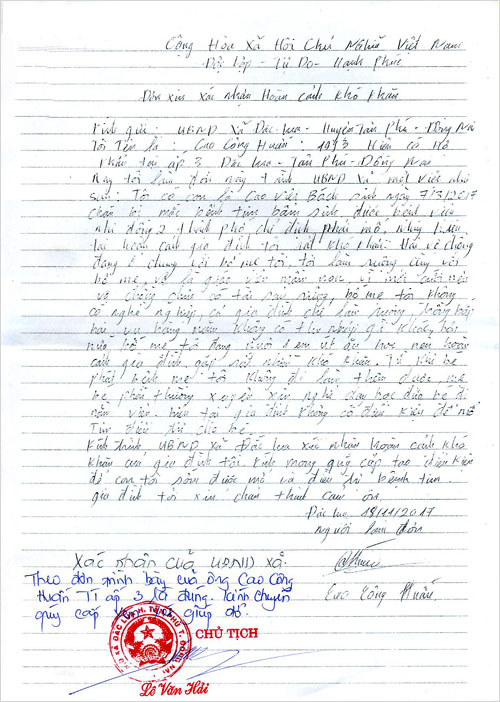 Cộng Hòa Xã Hội Chủ Nghĩa Việt Nam
Độc Lập - Tự Do - Hạnh Phúc
Đơn xin xác nhận Hoàn cảnh khó khăn
Kính gửi: UBND Xã Đắc Lua - Huyện Tân Phú - Đồng Nai
Tôi Tên là: Cao Công Huân: 1993 Hiện có Hộ
khẩu tại ấp 3 Đắc Lua - Tân Phú - Đồng Nai
Nay tôi làm đơn này trình UBND Xã một việc như
sau: Tôi có con là Cao Việt Bách sinh ngày 7/3/2017
cháu bị mắc bệnh tim bẩm sinh được bệnh viện
nhi đồng 2 thành phố chỉ định phải mổ, nhưng hiện
tại hoàn cảnh gia đình tôi rất khó khăn. Hai vợ chồng
đang ở chung với bố mẹ tôi, tôi làm ruộng cùng với
bố mẹ, vợ là giáo viên mầm non vì mới cưới nên
vợ chồng chưa có tài sản riêng, bố mẹ tôi không
có nghề nghiệp, cả gia đình chỉ làm ruộng, trồng bắp
hai vụ hàng năm không có thu nguồn gì khác, hơn
nữa bố mẹ tôi đang nuôi 1 em út ăn học nên hoàn
cảnh gia đình gặp rất nhiều khó khăn. Từ khi bé
phát bệnh mẹ tôi không đi làm thêm được, mẹ
bé phải thường xuyên xin nghỉ dạy học đưa bé đi
nằm viện. hiện tại gia đình không có điều kiện để mổ
Tim điều trị cho bé.
Kính trình UBND xã Đắc Lua xác nhận hoàn cảnh khó
khăn của gia đình tôi. Kính mong quý cấp tạo điều kiện
để con tôi sớm được mổ và điều trị bệnh tim.
gia đình tôi xin chân thành cảm ơn.
Đắc Lua 18/11/2017
Người làm đơn
Cao Công Huân
Xác nhận của UBND xã
Theo đơn trình bày của ông Cao Công
Huân TT ấp 3 là đúng. Kính chuyển
quý cấp giúp đỡ.
CHỦ TỊCH
Lê Văn Hải